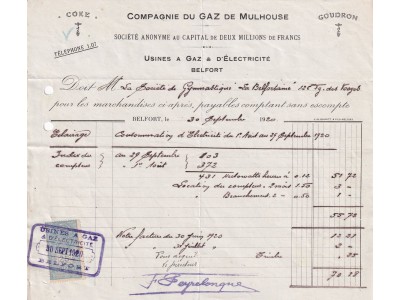 COKE
COMPAGNIE DU GAZ DE MULHOUSE
GOUDRON
SOCIÉTÉ ANONYME AU CAPITAL DE DEUX MILLIONS DE FRANCS
TÉLÉPHONE 1.01
USINES A GAZ & D'ÉLECTRICITÉ
BELFORT
Doit M La Société de Gymnastique "La Belfortaine" des Vosges
pour les marchandises ci après, payables comptant sans escompte
BELFORT, le 30 Septembre 1920
Eclairage Consommation d'Electricité du 1er Août au 29 Septembre 1920
Index du au 29 Septembre 803
compteur 1er Août 372
431 Kilowatts heures à 0.12 51 72
Location du compteur 2 mois 1.50 3 -
Branchement 2 1 -
55 72
Notre facture du 30 Juin 1920 12 21
Juillet 2 -
Timbre 25
70 18
USINES A GAZ
& D'ÉLECTRICITÉ
30 SEPT 1920
BELFORT